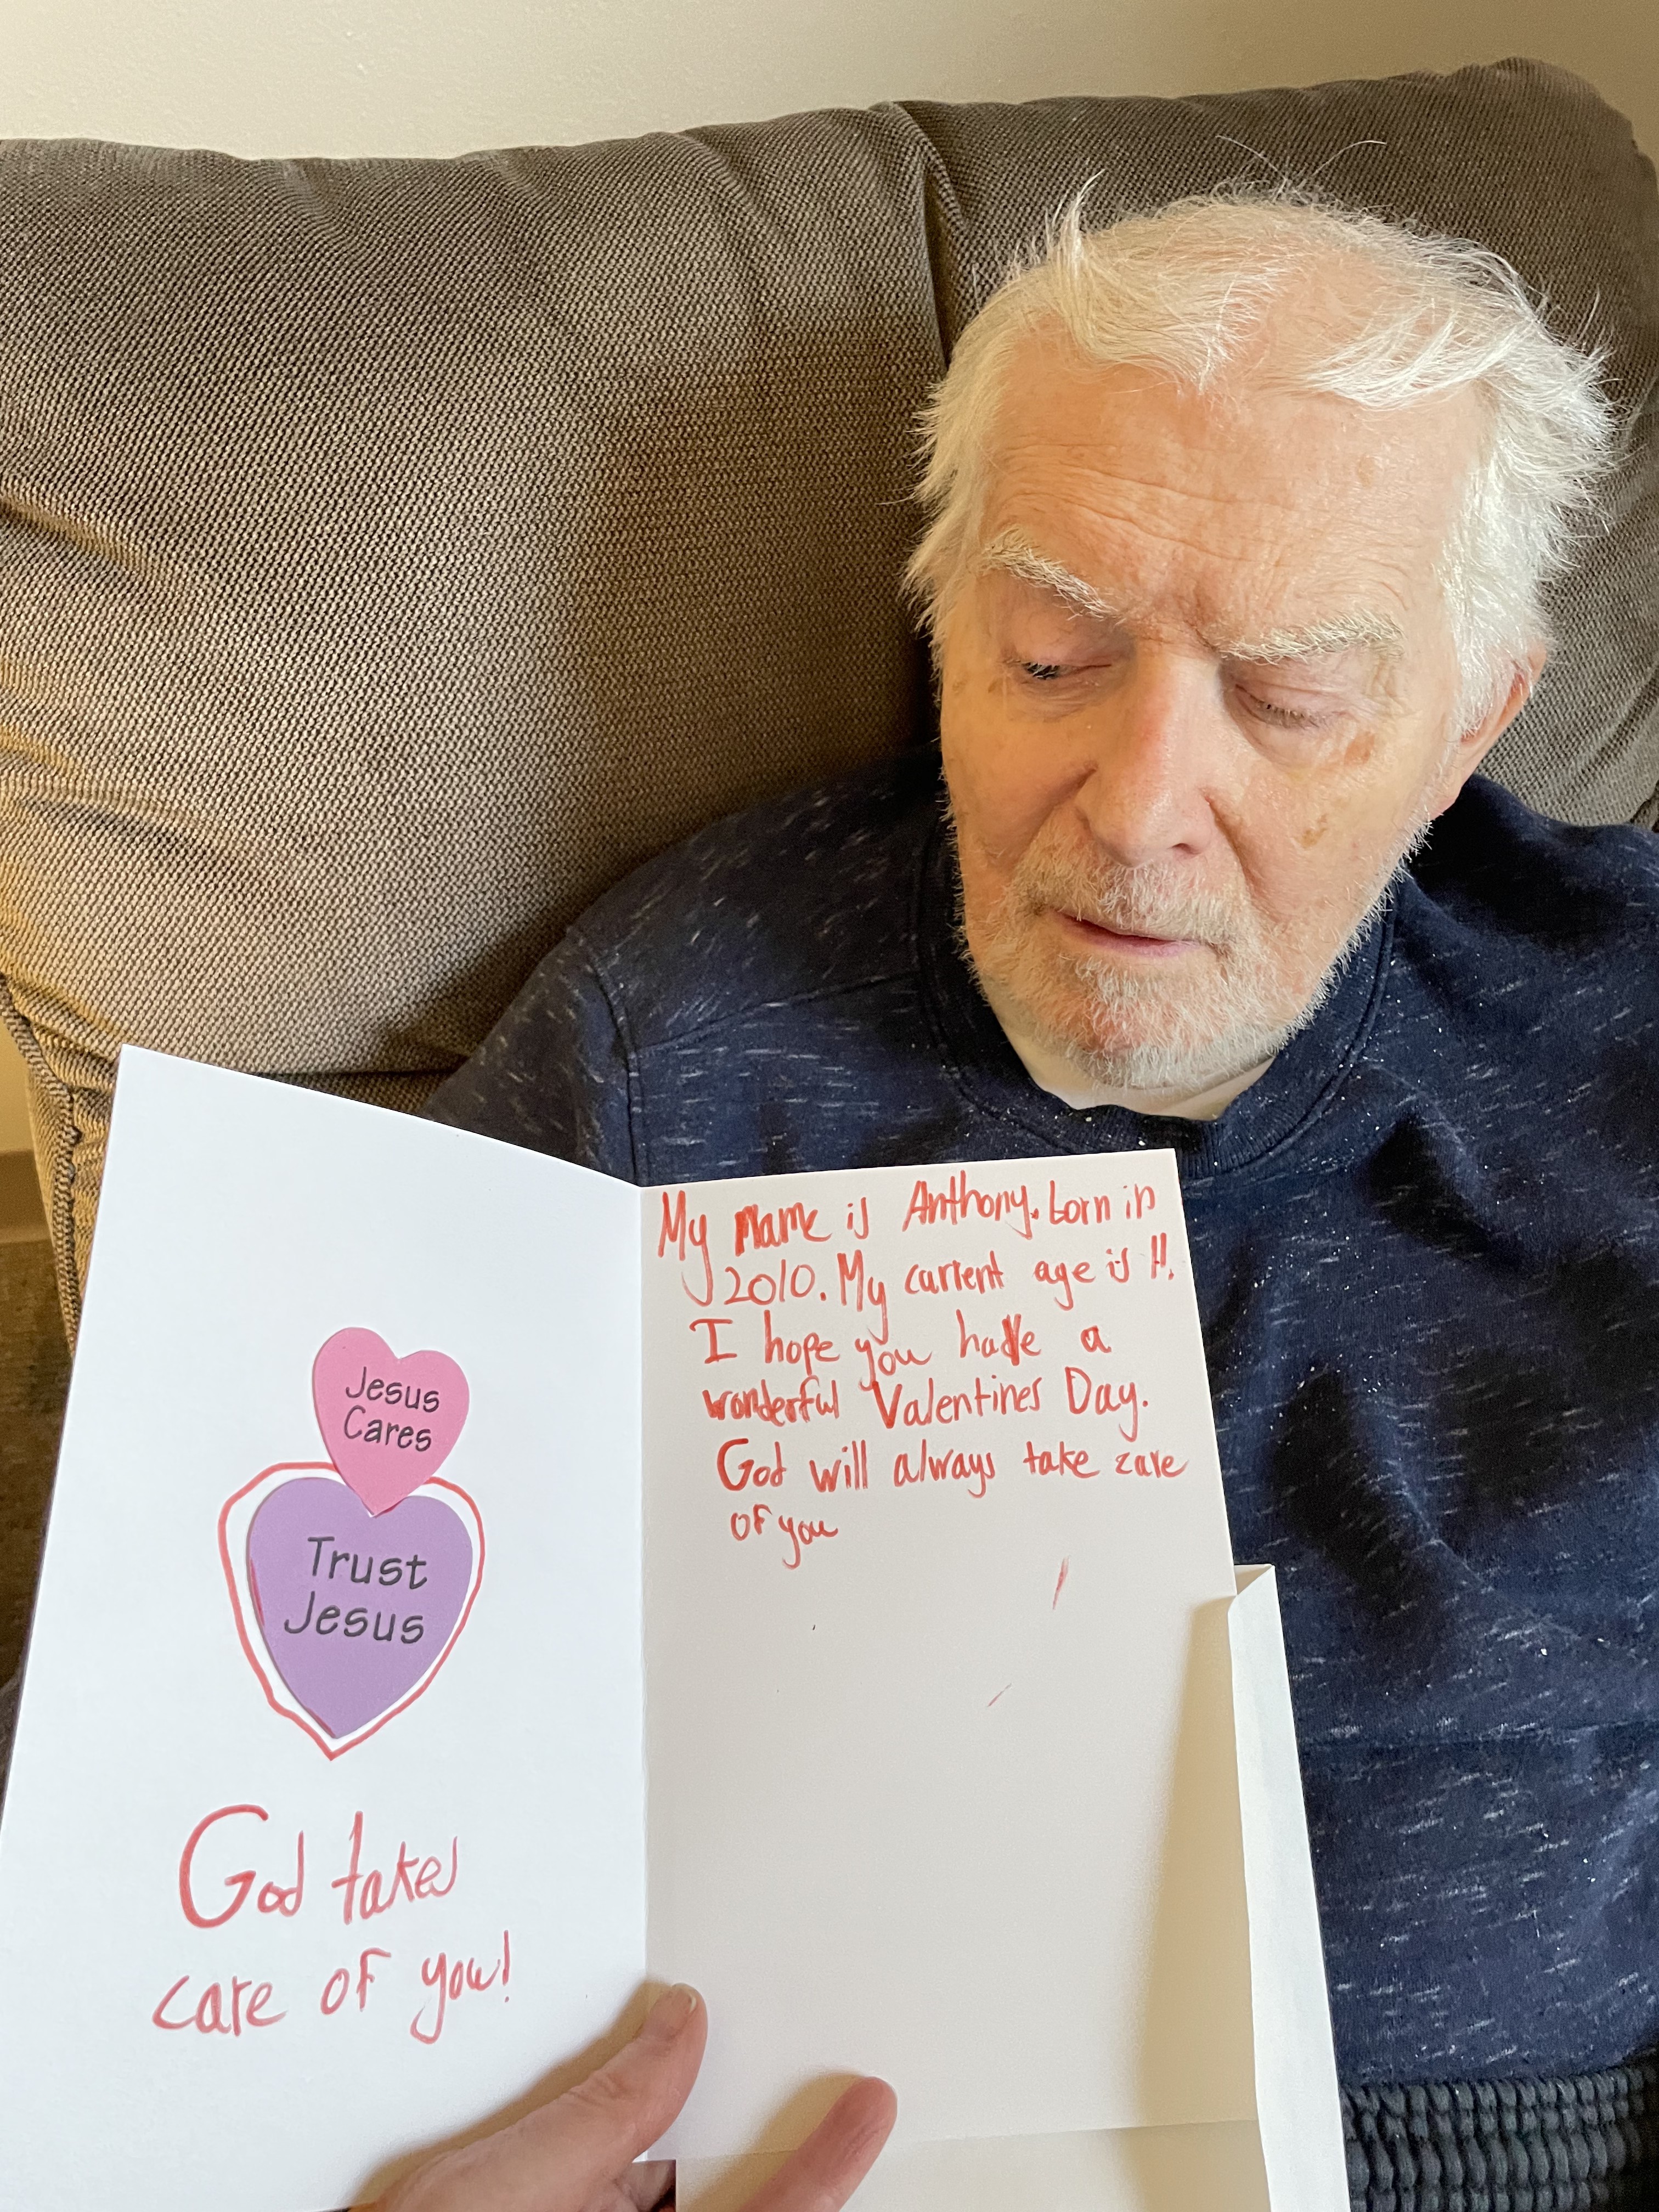 Jesus
Cares
Trust
Jesus
God takes
care of you!
My name is Anthony. born in
2010. My current age is 11.
I hope you have a
wonderful Valentines Day.
God will always take care
of you